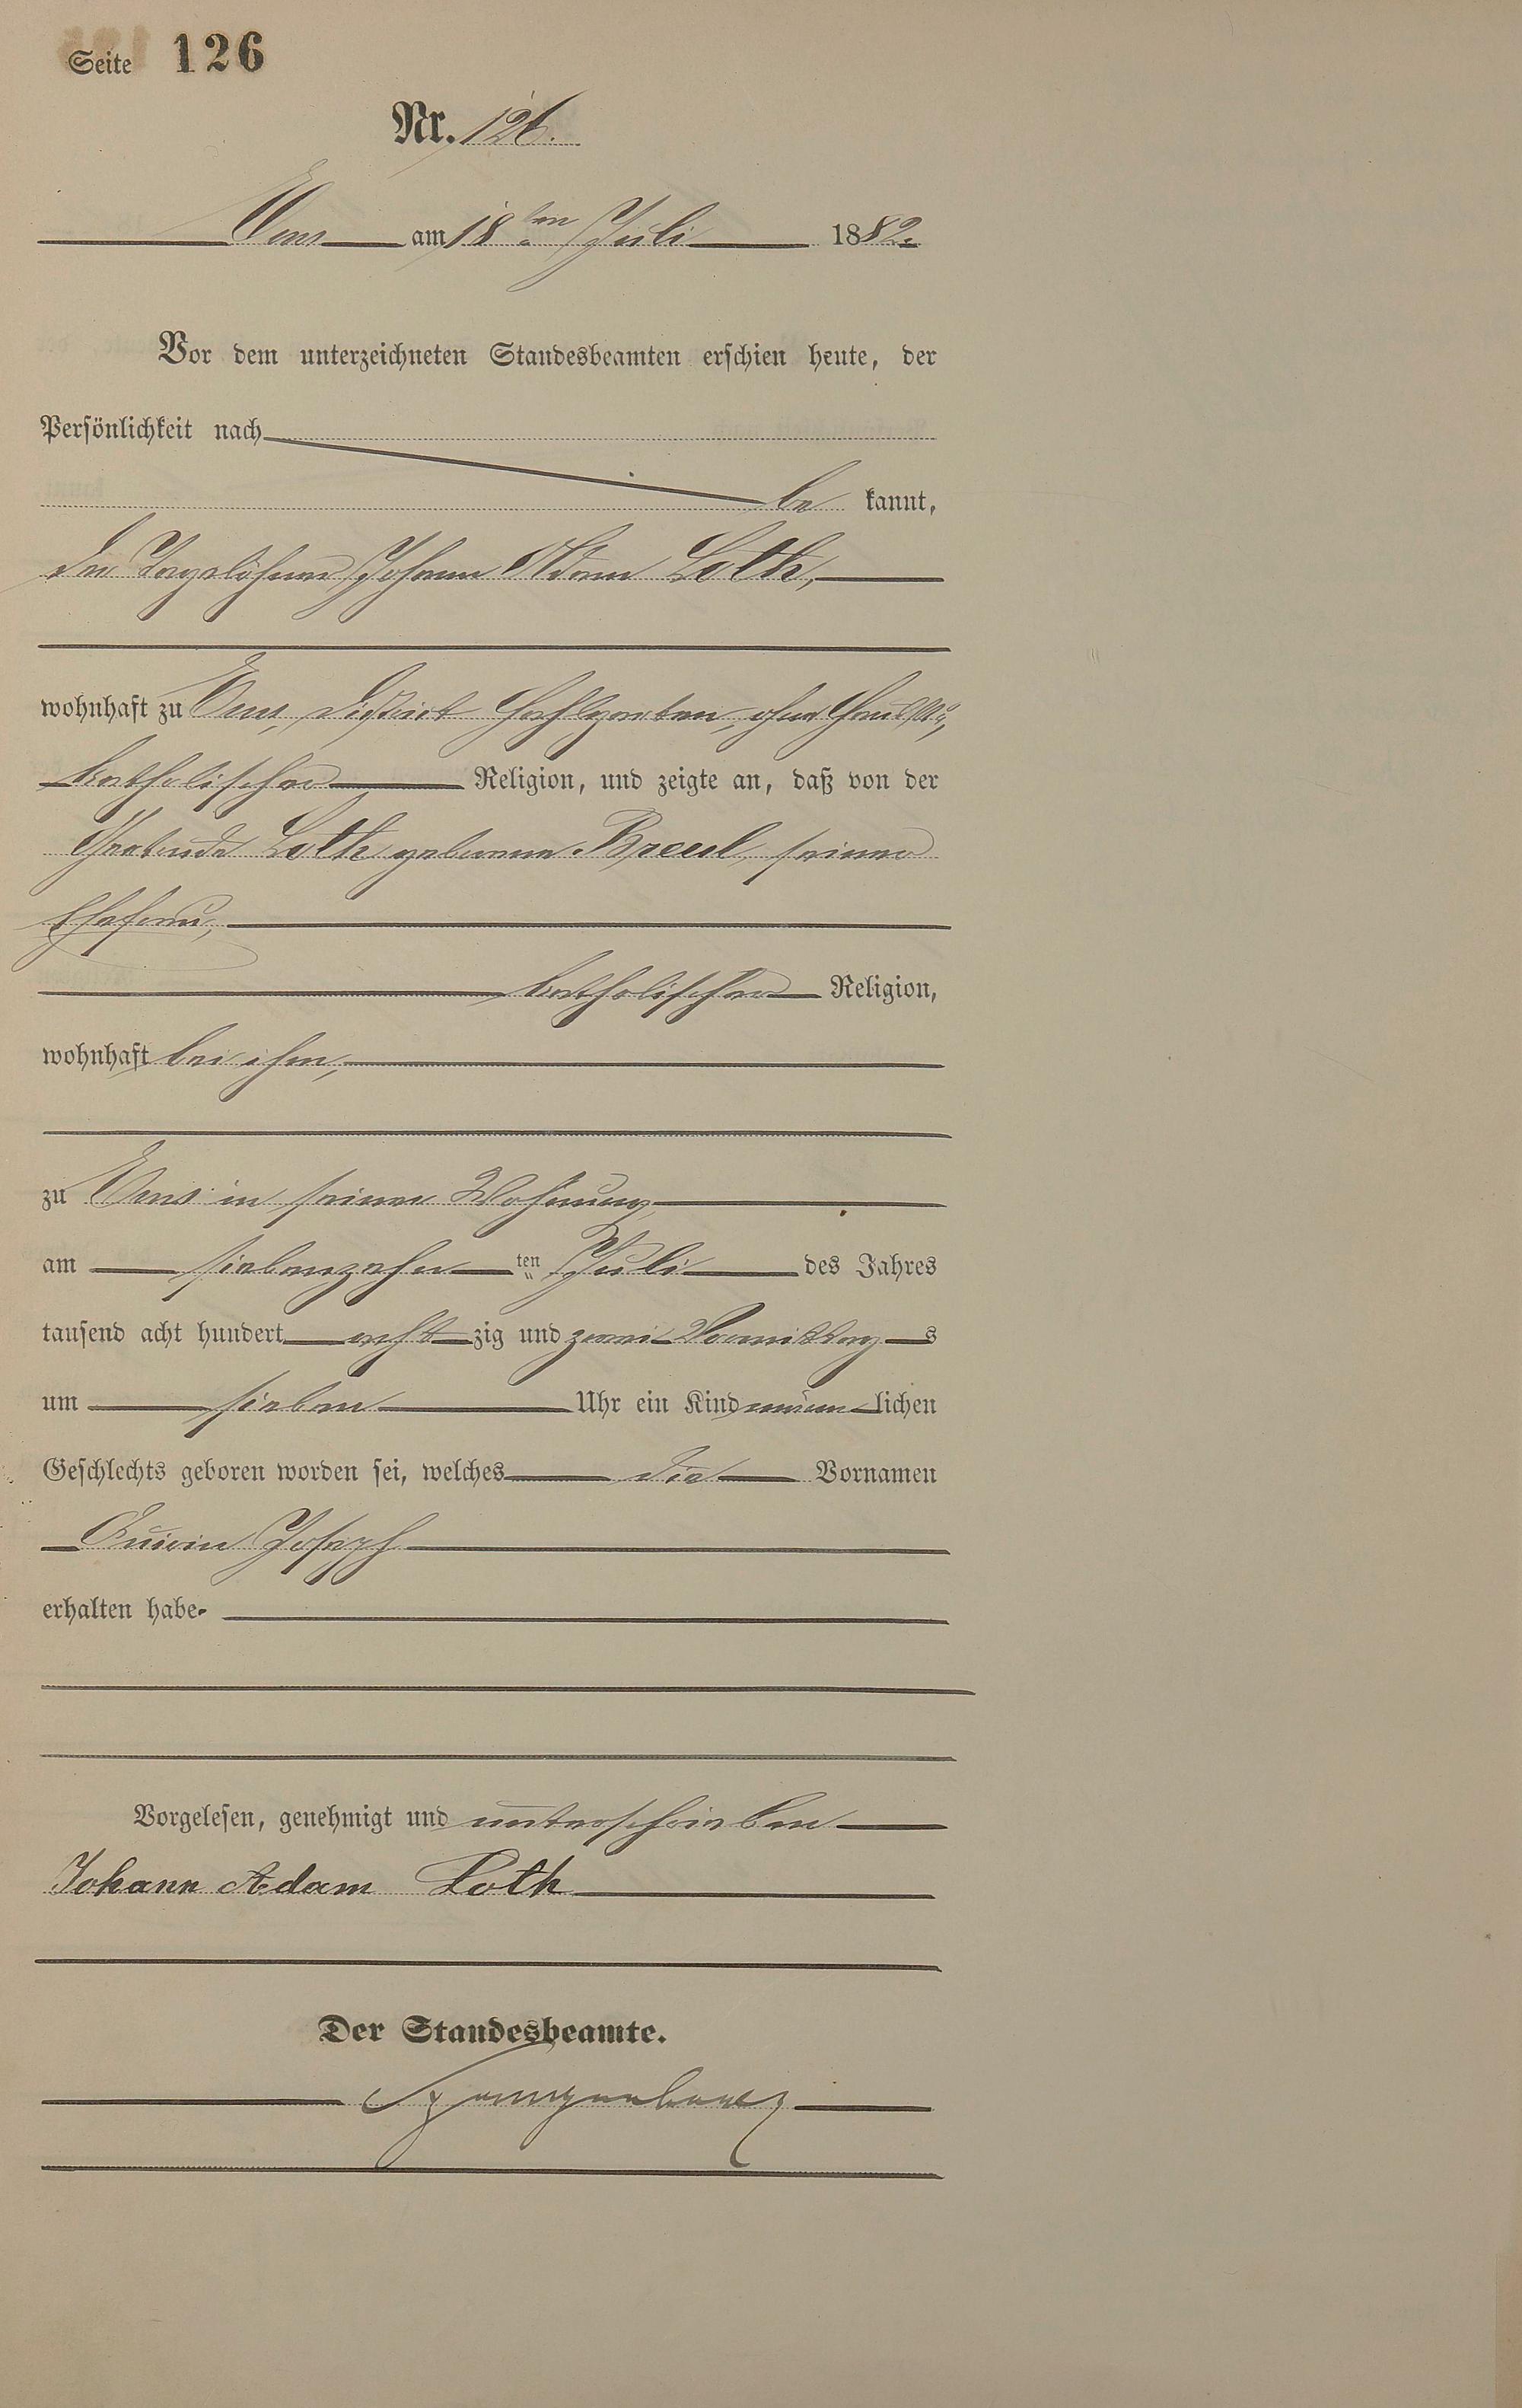 Seite 126
Nr. 126.
Ems am 18ten Juli 1882.
Vor dem unterzeichneten Standesbeamten erschien heute, der
Persönlichkeit nach
be kannt,
der Tagelöhner Johann Adam Loth,
wohnhaft zu Ems, District ohne Haus No,
katholischer Religion, und zeigte an, daß von der
Gertrude Loth geborene Breul, seiner
Ehefrau,
katholischer Religion,
wohnhaft bei ihm,
zu Ems in seiner Wohnung
am siebenzehn ten Juli des Jahres
tausend acht hundert acht zig und zwei Vormittag s
um sieben Uhr ein Kind männ lichen
Geschlechts geboren worden sei, welches die Vornamen
Joseph
erhalten habe.
Vorgelesen, genehmigt und unterschrieben
Johann Adam Loth
Der Standesbeamte.